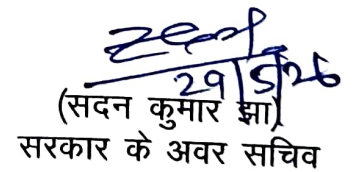 29/5/26
(सदन कुमार झा)
सरकार के अवर सचिव